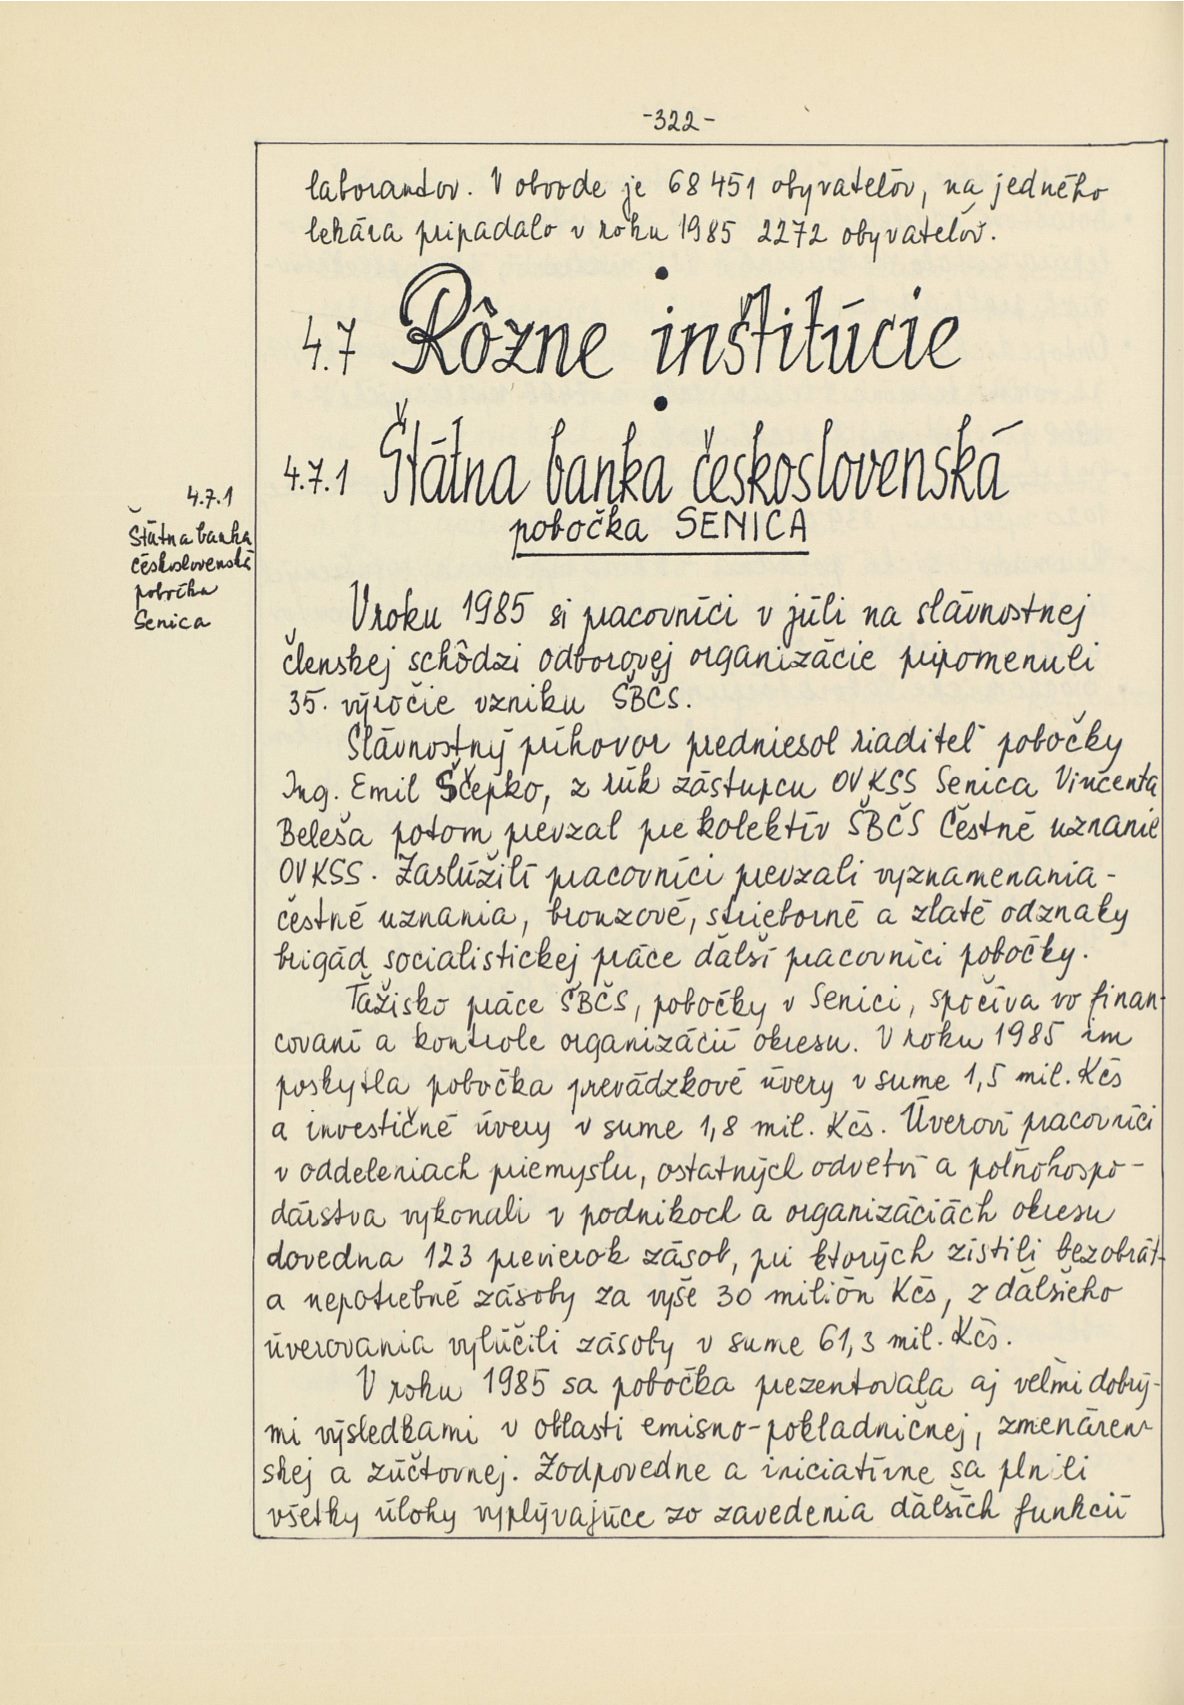 -322-
laborantov. V obvode je 68 451 obyvateľov, na jedného
lekára pripadalo v roku 1985 2272 obyvateľov.
4.7 Rôzne inštitúcie
4.7.1 Štátna banka československá
pobočka SENICA
4.7.1
Štátna banka
československá
pobočka
Senica
V roku 1985 si pracovníci v júli na slávnostnej
členskej schôdzi odborovej organizácie pripomenuli
35. výročie vzniku ŠBČS.
Slávnostný príhovor predniesol riaditeľ pobočky
Ing. Emil Ščepko, z rúk zástupcu OV KSS Senica Vincenta
Beleša potom prevzal pre kolektív ŠBČS Čestné uznanie
OV KSS. Zaslúžilí pracovníci prevzali vyznamenania -
čestné uznania, bronzové, strieborné a zlaté odznaky
brigád socialistickej práce ďalší pracovníci pobočky.
Ťažisko práce ŠBČS, pobočky v Senici, spočíva vo finan-
covaní a kontrole organizácií okresu. V roku 1985 im
poskytla pobočka prevádzkové úvery v sume 1,5 mil. Kčs
a investičné úvery v sume 1,8 mil. Kčs. Úveroví pracovníci
v oddeleniach priemyslu, ostatných odvetví a poľnohospo-
dárstva vykonali v podnikoch a organizáciách okresu
dovedna 123 previerok zásob, pri ktorých zistili bezobrát-
a nepotrebné zásoby za vyše 30 milión Kčs, z ďalšieho
úverovania vylúčili zásoby v sume 61,3 mil. Kčs.
V roku 1985 sa pobočka prezentovala aj veľmi dobrý-
mi výsledkami v oblasti emisno-pokladničnej, zmenáren-
skej a zúčtovnej. Zodpovedne a iniciatívne sa plnili
všetky úlohy vyplývajúce zo zavedenia ďalších funkcií